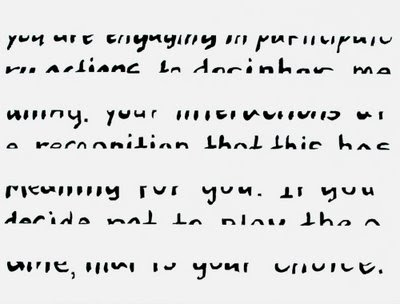 you are engaging in participato
ry actions to decipher me
aning. your interactions ar
e recognition that this has
meaning for you. If you
decide not to play the g
ame, that is your choice.